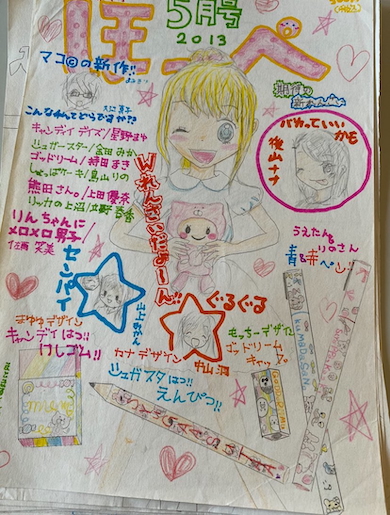 5月号
ほっぺ
2013
マコ©の新作!!
こんなれんさいどうですか??
キャンディ デイズ/星野まゆ
シュガースター/金田みか
ゴッドリーム/持田まき
しょっぱケーキ/島山りの
熊田さん。/上田優茶
りんちゃんに
メロメロ男子/
佐西 笑美
Wれんさいだよーん!!
バカっていい
かも
後山ナナ
うえたん&
りのさん
青&赤ペン
センパイ
山上みかん
ぐるぐる
中山 沺
まゆゆデザイン
キャンディはつ!!
けしゴム!!
カナデザイン
シュガスタはつ!!
えんぴつ!!
もっちーデザイン
ゴッドリーム
キャップ
KUMADASAN
SUGASUTA